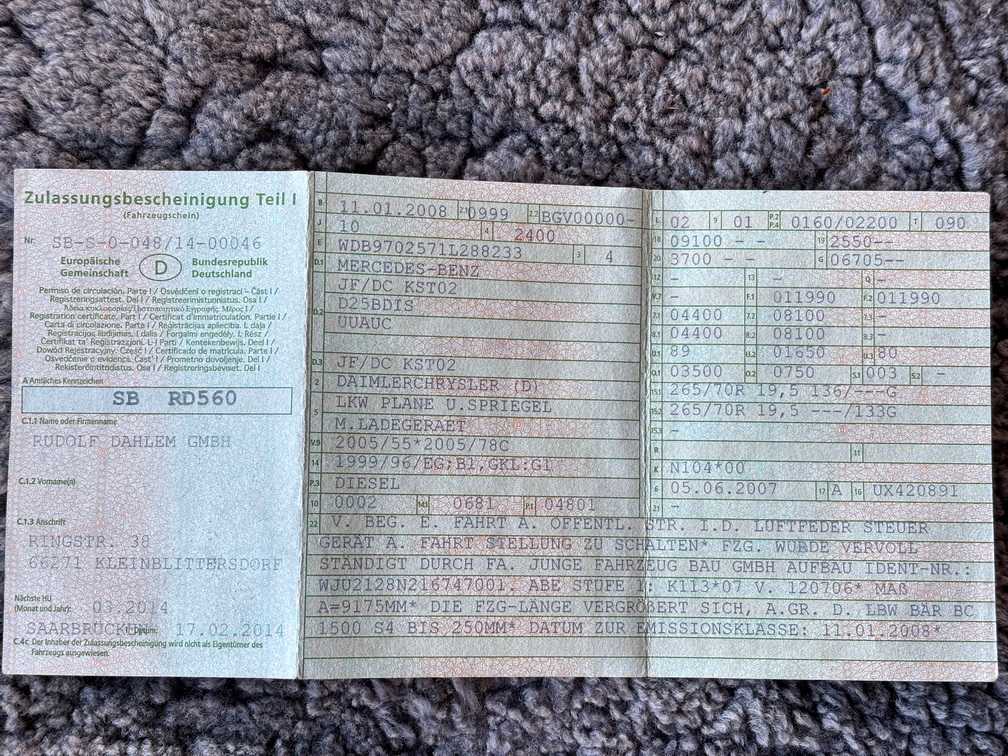 Zulassungsbescheinigung Teil I
(Fahrzeugschein)
Nr. SB-S-0-048/14-00046
Europäische Gemeinschaft D Bundesrepublik Deutschland
Permiso de circulación. Parte I / Osvědčení o registraci – Část I /
Registreringsattest. Del I / Registreerimistunnistus. Osa I /
Άδεια κυκλοφορίας/Πιστοποιητικό Εγγραφής. Μέρος I /
Registration certificate. Part I / Certificat d'immatriculation. Partie I /
Carta di circolazione. Parte I / Reģistrācijas apliecība. I. daļa /
Registracijos liudijimas. I dalis / Forgalmi engedély. I. Rész /
Ċertifikat ta' Reġistrazzjoni. L-I Parti / Kentekenbewijs. Deel I /
Dowód Rejestracyjny. Część I / Certificado de matrícula. Parte I /
Osvedčenie o evidencii. Časť I / Prometno dovoljenje. Del I /
Rekisteröintitodistus. Osa I / Registreringsbeviset. Del I
A Amtliches Kennzeichen
SB RD560
C.1.1 Name oder Firmenname
RUDOLF DAHLEM GMBH
C.1.2 Vorname(n)
C.1.3 Anschrift
RINGSTR. 38
66271 KLEINBLITTERSDORF
Nächste HU
(Monat und Jahr): 03.2014
SAARBRÜCKEN Datum: 17.02.2014
C.4c Der Inhaber der Zulassungsbescheinigung wird nicht als Eigentümer des
Fahrzeugs ausgewiesen.
B 11.01.2008 2.1 0999 2.2 BGV00000-
J 10 4 2400
E WDB9702571L288233 3 4
D.1 MERCEDES-BENZ
JF/DC KST02
D.2 D25BDIS
UUAUC
D.3 JF/DC KST02
2 DAIMLERCHRYSLER (D)
5 LKW PLANE U.SPRIEGEL
M.LADEGERAET
V.9 2005/55*2005/78C
14 1999/96/EG;B1,GKL:G1
P.3 DIESEL
10 0002 14.1 0681 P.1 04801
L 02 9 01 P.2 P.4 0160/02200 T 090
18 09100 - - 19 2550--
20 3700 - - G 06705--
12 - 13 - Q -
V.7 - F.1 011990 F.2 011990
7.1 04400 7.2 08100 7.3 -
8.1 04400 8.2 08100 8.3 -
U.1 89 U.2 01650 U.3 80
O.1 03500 O.2 0750 S.1 003 S.2 -
15.1 265/70R 19,5 136/---G
15.2 265/70R 19,5 ---/133G
15.3 -
R 11
K N104*00
6 05.06.2007 17 A 16 UX420891
21 -
22 V. BEG. E. FAHRT A. ÖFFENTL. STR. I.D. LUFTFEDER STEUER
GERÄT A. FAHRT STELLUNG ZU SCHALTEN* FZG. WURDE VERVOLL
STÄNDIGT DURCH FA. JUNGE FAHRZEUG BAU GMBH AUFBAU IDENT-NR.:
WJU2128N216747001. ABE STUFE : K113*07 V. 120706* MAß
A=9175MM* DIE FZG-LÄNGE VERGRÖßERT SICH, A.GR. D. LBW BÄR BC
1500 S4 BIS 250MM* DATUM ZUR EMISSIONSKLASSE: 11.01.2008*